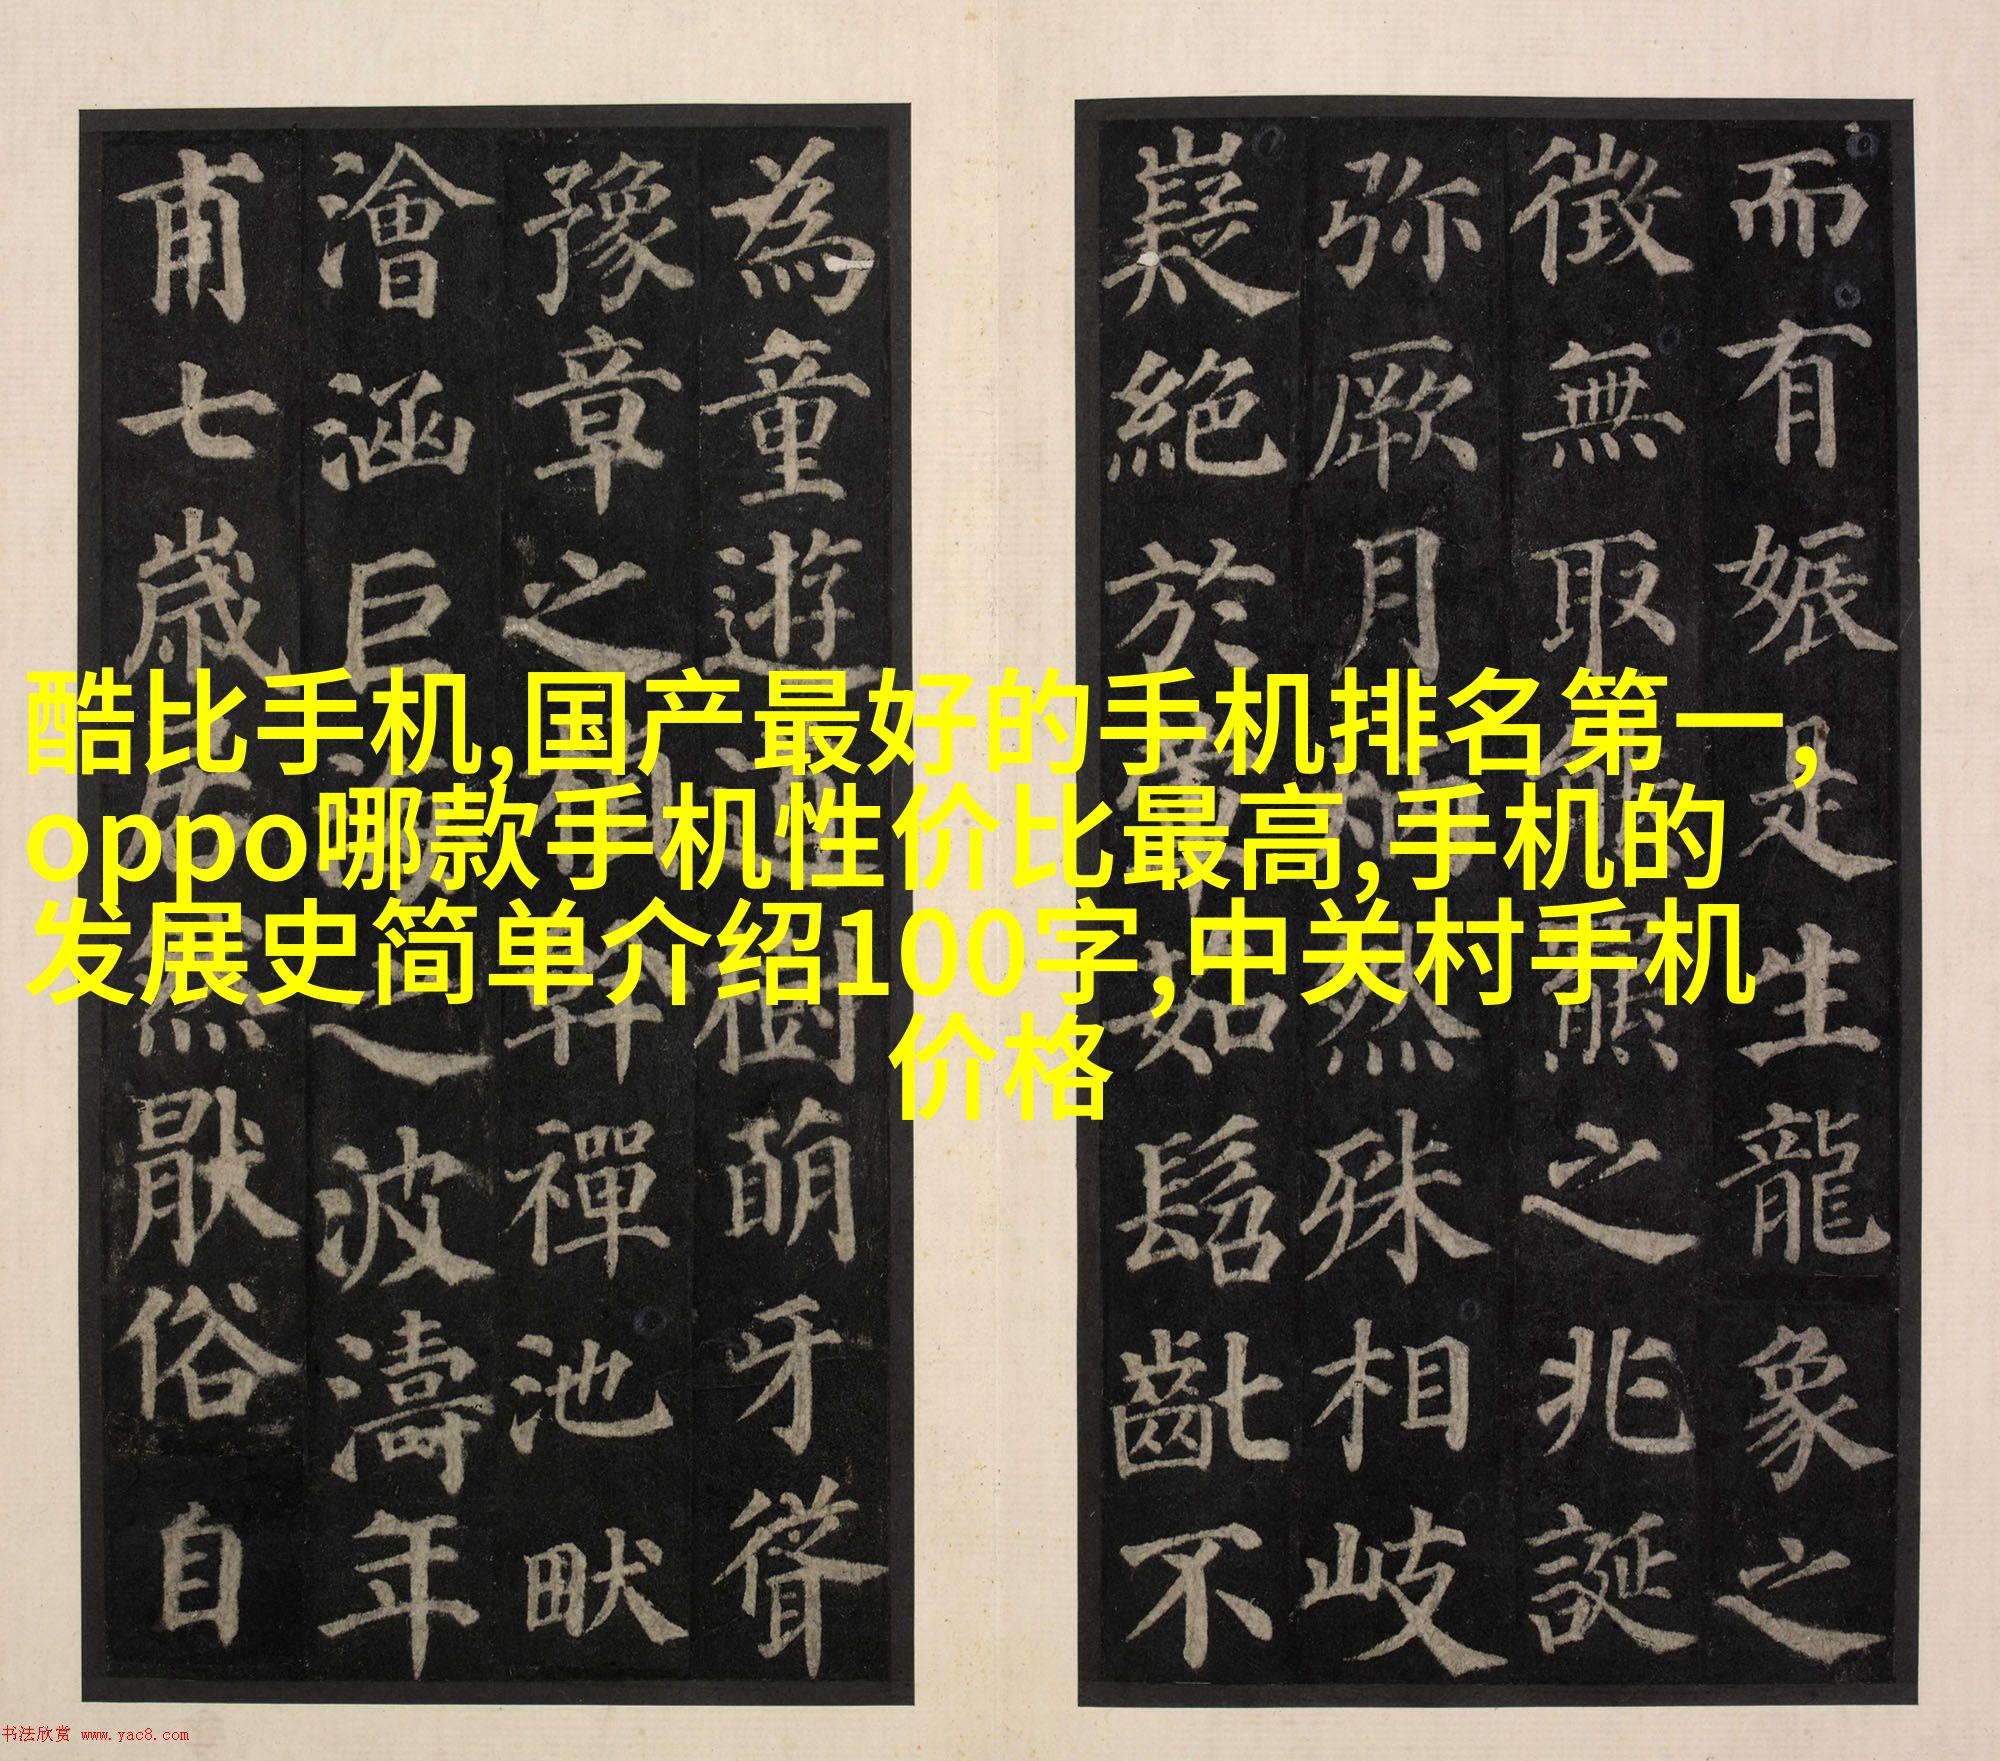 而有娠是生龍象之
徵無取熊羆之兆誕
弥厥月炳然殊相岐
嶷絕於葷茹髫齔不
為童遊道樹萌牙聳
豫章之楨幹禪池畎
澮涵巨海之波濤年
甫七歲居然厭俗自
酷比手机,国产最好的手机排名第一,
oppo哪款手机性价比最高,手机的
发展史简单介绍100字,中关村手机
价格
书法欣赏 www.yac8.com